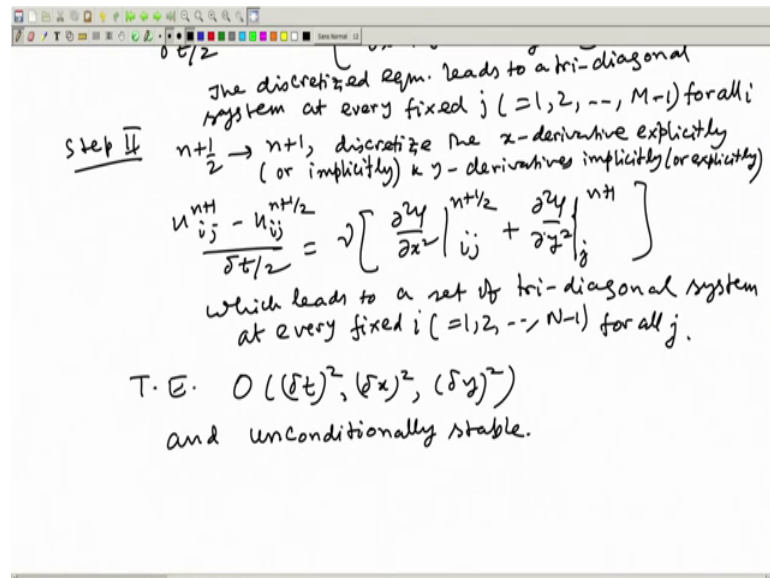 δt/2
The discretized eqn. leads to a tri-diagonal
system at every fixed j (=1,2, --, M-1) for all i
Step II n+1/2 → n+1, discretize the x-derivative explicitly
(or implicitly) & y-derivatives implicitly (or explicitly)
(u_{ij}^{n+1} - u_{ij}^{n+1/2}) / (δt/2) = ν [ ∂²u/∂x² |_{ij}^{n+1/2} + ∂²u/∂y² |_{j}^{n+1} ]
which leads to a set of tri-diagonal system
at every fixed i (=1,2, --, N-1) for all j.
T.E. O((δt)², (δx)², (δy)²)
and unconditionally stable.